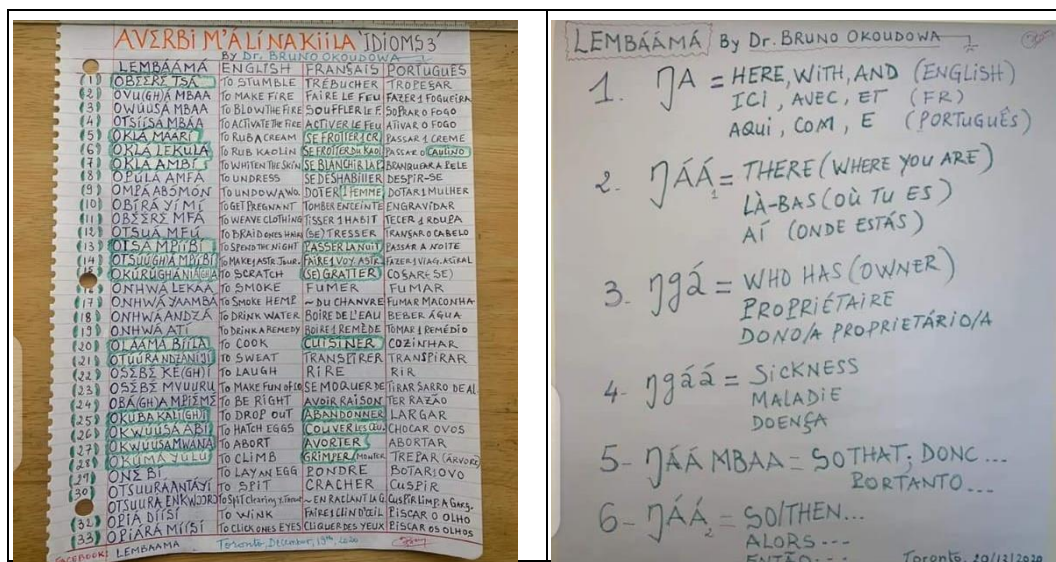 AVƐRBI M'ÁLÍNAKIILA 'IDIOMS3'
By Dr. BRUNO OKOUDOWA
LEMBÁÁMÁ ENGLISH FRANŞAIS PORTUGUÊS
(1) OBƐƐRƐ TSÁ TO STUMBLE TRÉBUCHER TROPEŞAR
(2) OVU(GH)Á MBAA TO MAKE FIRE FAIRE LE FEU FAZER 1 FOGUEIRA
(3) OWÚUSÁ MBAA TO BLOW THE FIRE SOUFFLER LE F. SOPRAR O FOGO
(4) OTSÍÍSA MBAA TO ACTIVATE THE FIRE ACTIVER LE FEU ATIVAR O FOGO
(5) OKLÁ MAARÍ TO RUB A CREAM SE FROTTER 1 CR. PASSAR 1 CREME
(6) OKLÁ LEKULÁ TO RUB KAOLIN SE FROTTER DU KAO PASSAR O CAULINO
(7) OKLÁ AMBÍ TO WHITEN THE SKIN SE BLANCHIR LA P. BRANQUEAR A PELE
(8) OPÚLÁ AMFA TO UNDRESS SE DÉSHABILLER DESPIR-SE
(9) OMPÁ ABSMON TO UNDOWA WO. DOTER 1 FEMME DOTAR 1 MULHER
(10) OBÍRÁ YÍMÍ TO GET PREGNANT TOMBER ENCEINTE ENGRAVIDAR
(11) OBƐƐRƐ MFÁ TO WEAVE CLOTHING TISSER 1 HABIT TECER 1 ROUPA
(12) OTSUÁ MFÚ TO BRAID ONES HAIR (SE) TRESSER TRANŞAR O CABELO
(13) OTSÁ MPÍÍBÍ TO SPEND THE NIGHT PASSER LA NUIT PASSAR A NOITE
(14) OTSÚU(GH)Á MPÍÍBÍ TO MAKE 1 ASTR. JOUR. FAIRE 1 VOY. ASTR. FAZER 1 VIAG. ASTRAL
OKÚRÚGHÁNI TO SCRATCH (SE) GRATTER COŞAR(-SE)
ONHWÁ LEKAA TO SMOKE FUMER FUMAR
(17) ONHWÁ YAAMBA TO SMOKE HEMP ~ DU CHANVRE FUMAR MACONHA
(18) ONHWÁ ANDZÁ TO DRINK WATER BOIRE DE L'EAU BEBER ÁGUA
(19) ONHWÁ ATÍ TO DRINK A REMEDY BOIRE 1 REMÈDE TOMAR 1 REMÉDIO
(20) OLÁÁMÁ BIILA TO COOK CUISINER COZINHAR
(21) OTÚÚRA NDZÁNÍ TO SWEAT TRANSPIRER TRANSPIRAR
(22) OSƐBƐ KE(GH)Í TO LAUGH RIRE RIR
(23) OSƐBƐ MVUURU TO MAKE FUN OF SE MOQUER DE TIRAR SARRO DE AL.
(24) OBÁ(GH)A MPIƐMƐ TO BE RIGHT AVOIR RAISON TER RAZÃO
(25) OKÚBA KALI(GH) TO DROP OUT ABANDONNER LARGAR
(26) OKWÚÚSÁ ABÍ TO HATCH EGGS COUVER LES ŒU. CHOCAR OVOS
(27) OKWÚUSA MWANA TO ABORT AVORTER ABORTAR
(28) OKÚMA YÚLU TO CLIMB GRIMPER/MONTER TREPAR (ÁRVORE)
(29) ONƐ BÍ TO LAY AN EGG PONDRE BOTAR 1 OVO
(30) OTSUURA ANTÁYÍ TO SPIT CRACHER CUSPIR
OTSUURA To Spit Clearing y. Throat ~ EN RACLANT LA G. CUSPIR LIMP. A GARG.
(32) OPIÁ DÍÍSÍ TO WINK FAIRE 1 CLIN D'ŒIL PISCAR O OLHO
(33) OPIÁRÁ MÍÍSÍ TO CLICK ONES EYES CLIQUER DES YEUX PISCAR OS OLHOS
FACEBOOK: LEMBAAMA Toronto, December, 19th, 2020
LEMBÁÁMÁ By Dr. BRUNO OKOUDOWA
1. ŊA = HERE, WITH, AND (ENGLISH)
ICI, AVEC, ET (FR)
AQUI, COM, E (PORTUGUÊS)
2. ŊÁÁ1 = THERE (WHERE YOU ARE)
LÀ-BAS (OÙ TU ES)
AÍ (ONDE ESTÁS)
3- ŋgá = WHO HAS (OWNER)
PROPRIÉTAIRE
DONO/A PROPRIETÁRIO/A
4- ŋgáá = SICKNESS
MALADIE
DOENŞA
5- ŊÁÁ MBAA = SO THAT; DONC ...
PORTANTO...
6- ŊÁÁ2 = SO/THEN...
ALORS ---
ENTÃO --- Toronto, 20/12/2020